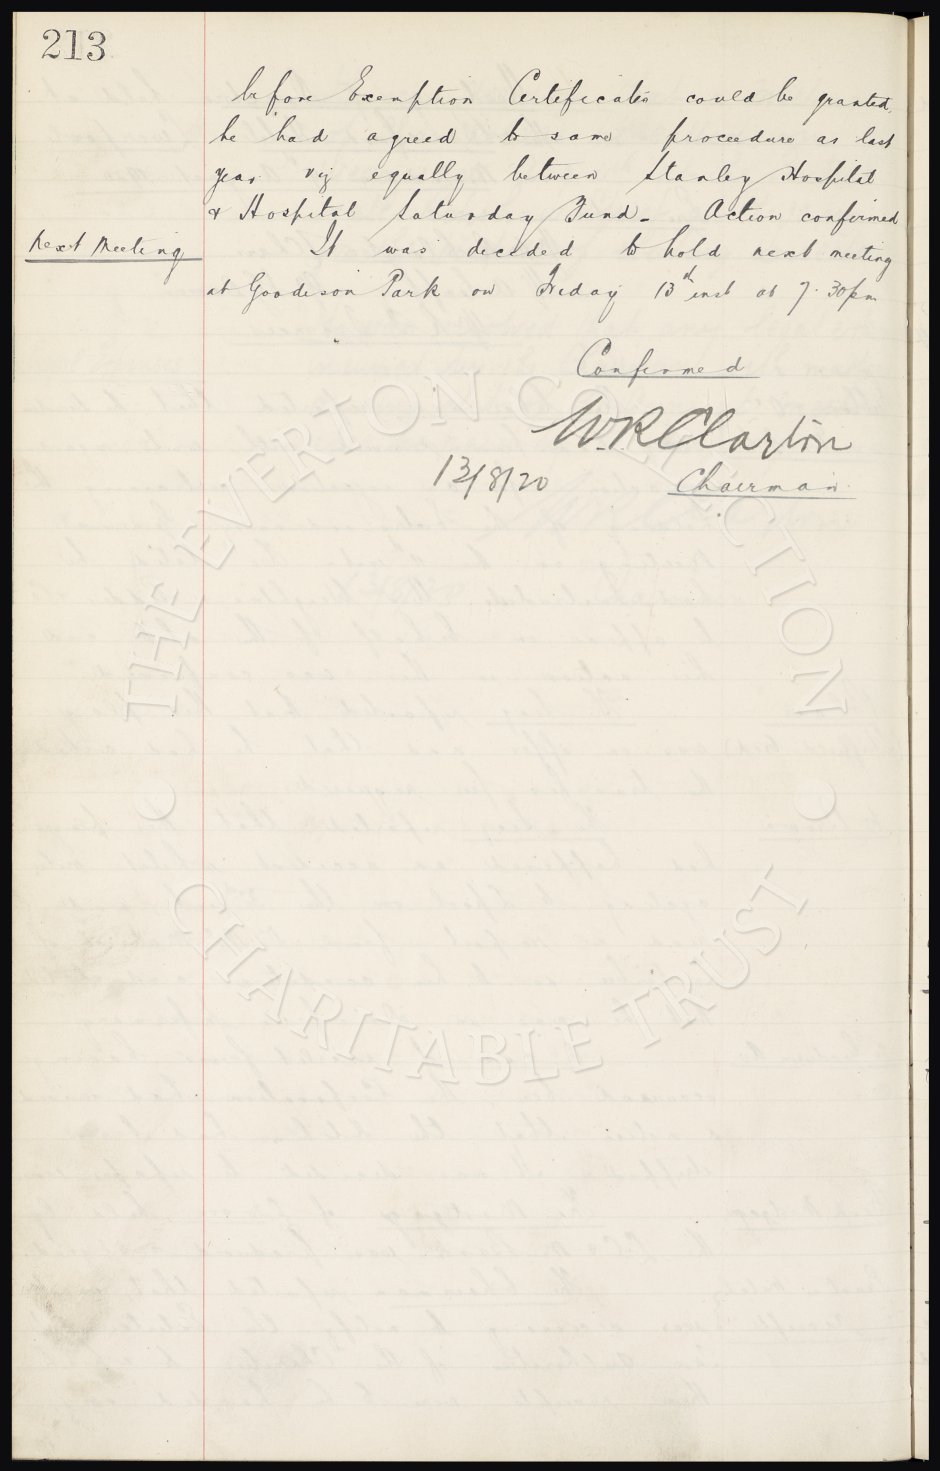 213
before Exemption Certificates could be granted.
he had agreed to same proceedure as last
year viz equally between Stanley Hospital
& Hospital Saturday Fund - Action confirmed
Next Meeting
It was decided to hold next meeting
at Goodison Park on Friday 13th inst at 7.30pm
Confirmed
W.R. Clayton
13/8/20
Chairman
THE EVERTON COLLECTION
CHARITABLE TRUST